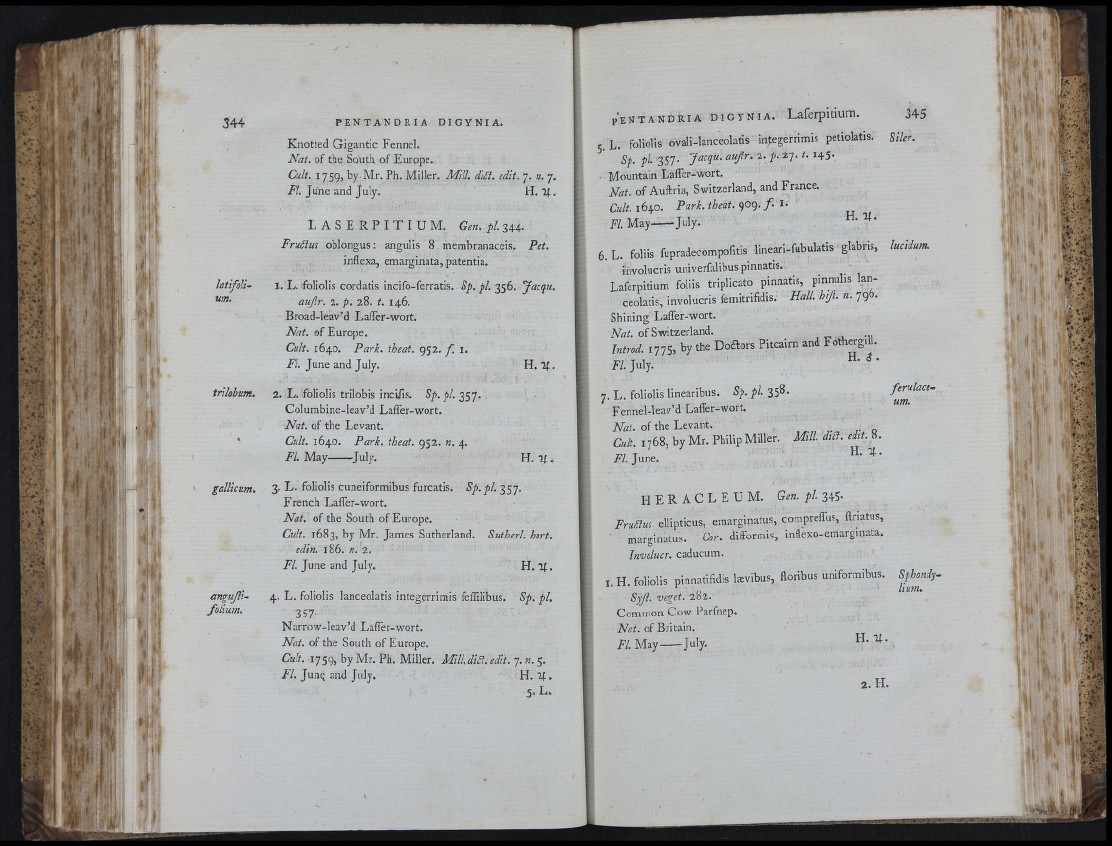 344 PENTANDRIA DIGYNIA.
Knotted Gigantic Fennel.
Nat. of the South of Europe.
Cult. 1759, by Mr. Ph. Miller. Mill. dict. edit. 7. n. 7.
Fl. June and July. H. ♃.
LASERPITIUM. Gen. pl. 344.
Fructus oblongus: angulis 8 membranaceis. Pet.
inflexa, emarginata, patentia.
latifoli- 1. L. foliolis cordatis inciso-serratis. Sp. pl. 356. Jacqu.
um. austr. 2. p. 28. t. 146.
Broad-leav'd Lasser-wort.
Nat. of Europe.
Cult. 1640. Park. theat. 952. f. 1.
Fl. June and July. H. ♃.
trilobum. 2. L. foliolis trilobis incisis. Sp. pl. 357.
Columbine-leav'd Lasser-wort.
Nat. of the Levant.
Cult. 1640. Park. theat. 952. n. 4.
Fl. May——July. H. ♃.
gallicum. 3. L. foliolis cuneiformibus furcatis. Sp. pl. 357.
French Lasser-wort.
Nat. of the South of Europe.
Cult. 1683, by Mr. James Sutherland. Sutherl. hort.
edin. 186. n. 2.
Fl. June and July. H. ♃.
angusti- 4. L. foliolis lanceolatis integerrimis sessilibus. Sp. pl.
folium. 357.
Narrow-leav'd Lasser-wort.
Nat. of the South of Europe.
Cult. 1759, by Mr. Ph. Miller. Mill. dict. edit. 7. n. 5.
Fl. June and July. H. ♃.
5. L.
PENTANDRIA DIGYNIA. Laserpitium. 345
5. L. foliolis ovali-lanceolatis integerrimis petiolatis. Siler.
Sp. pl. 357. Jacqu. austr. 2. p. 27. t. 145.
Mountain Lasser-wort.
Nat. of Austria, Switzerland, and France.
Cult. 1640. Park. theat. 909. f. 1.
Fl. May——July. H. ♃.
6. L. foliis supradecompositis lineari-subulatis glabris, lucidum.
involucris universalibus pinnatis.
Laserpitium foliis triplicato pinnatis, pinnulis lan-
ceolatis, involucris semitrifidis. Hall. hist. n. 796.
Shining Lasser-wort.
Nat. of Switzerland.
Introd. 1775, by the Doctors Pitcairn and Fothergill.
Fl. July. H. ♂.
7. L. foliolis linearibus. Sp. pl. 358. ferulace-
Fennel-leav'd Lasser-wort. um.
Nat. of the Levant.
Cult. 1768, by Mr. Philip Miller. Mill. dict. edit. 8.
Fl. June. H. ♃.
HERACLEUM. Gen. pl. 345.
Fructus ellipticus, emarginatus, compressus, striatus,
marginatus. Cor. difformis, inflexo-emarginata.
Involucr. caducum.
1. H. foliolis pinnatifidis lævibus, floribus uniformibus. Sphondy-
Syst. veget. 282. lium.
Common Cow Parsnep.
Nat. of Britain.
Fl. May——July. H. ♃.
2. H.